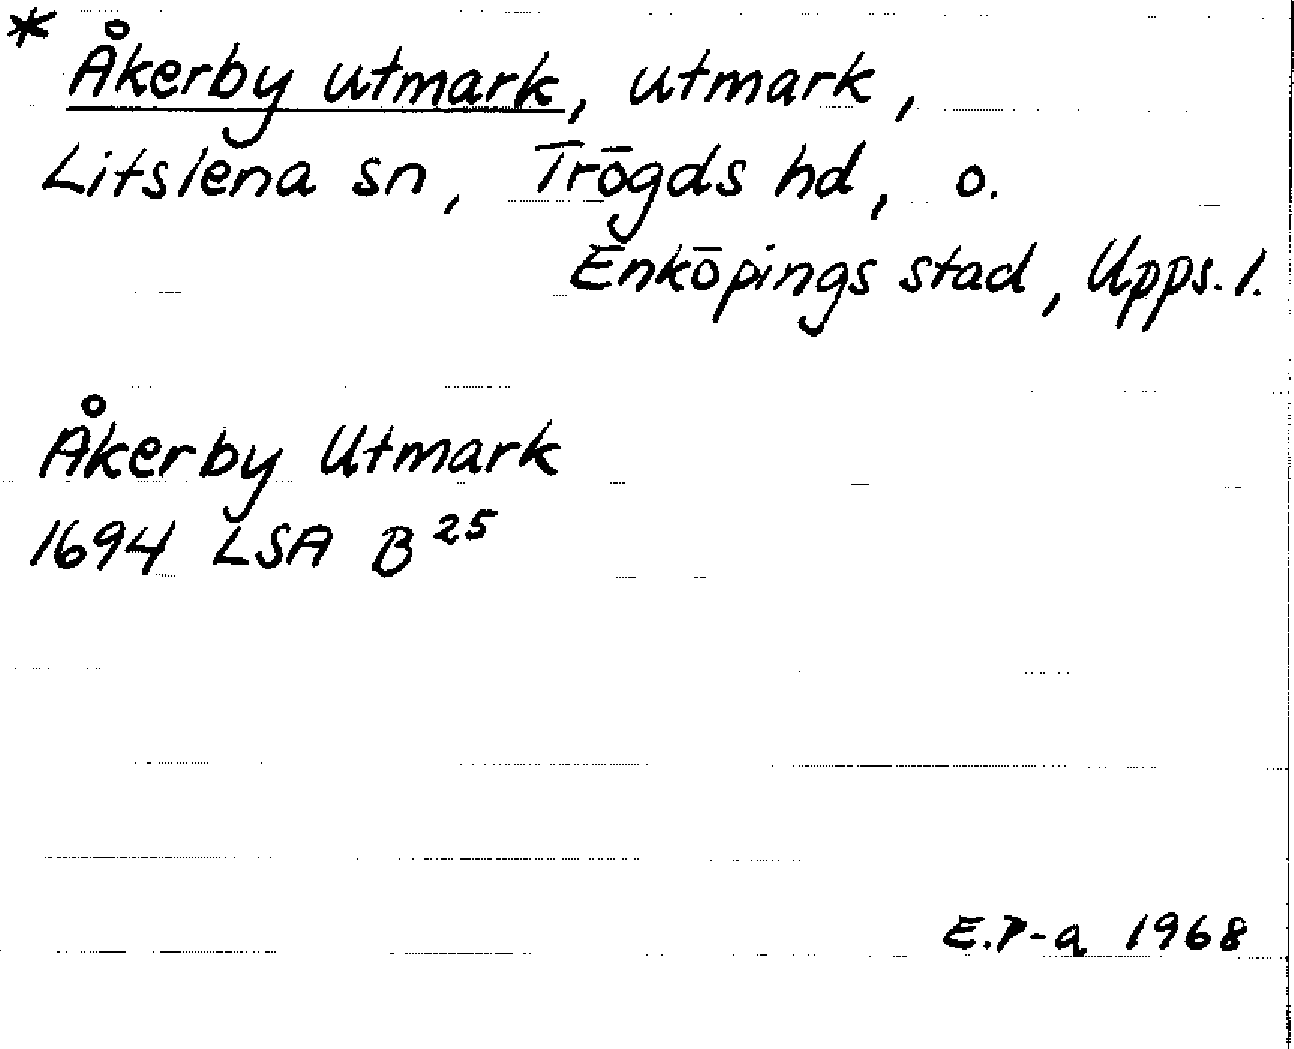 * Åkerby utmark, utmark,
Litslena sn, Trögds hd, o.
Enköpings stad, Upps. l.
Åkerby Utmark
1694 LSA B 25
E.P-a 1968